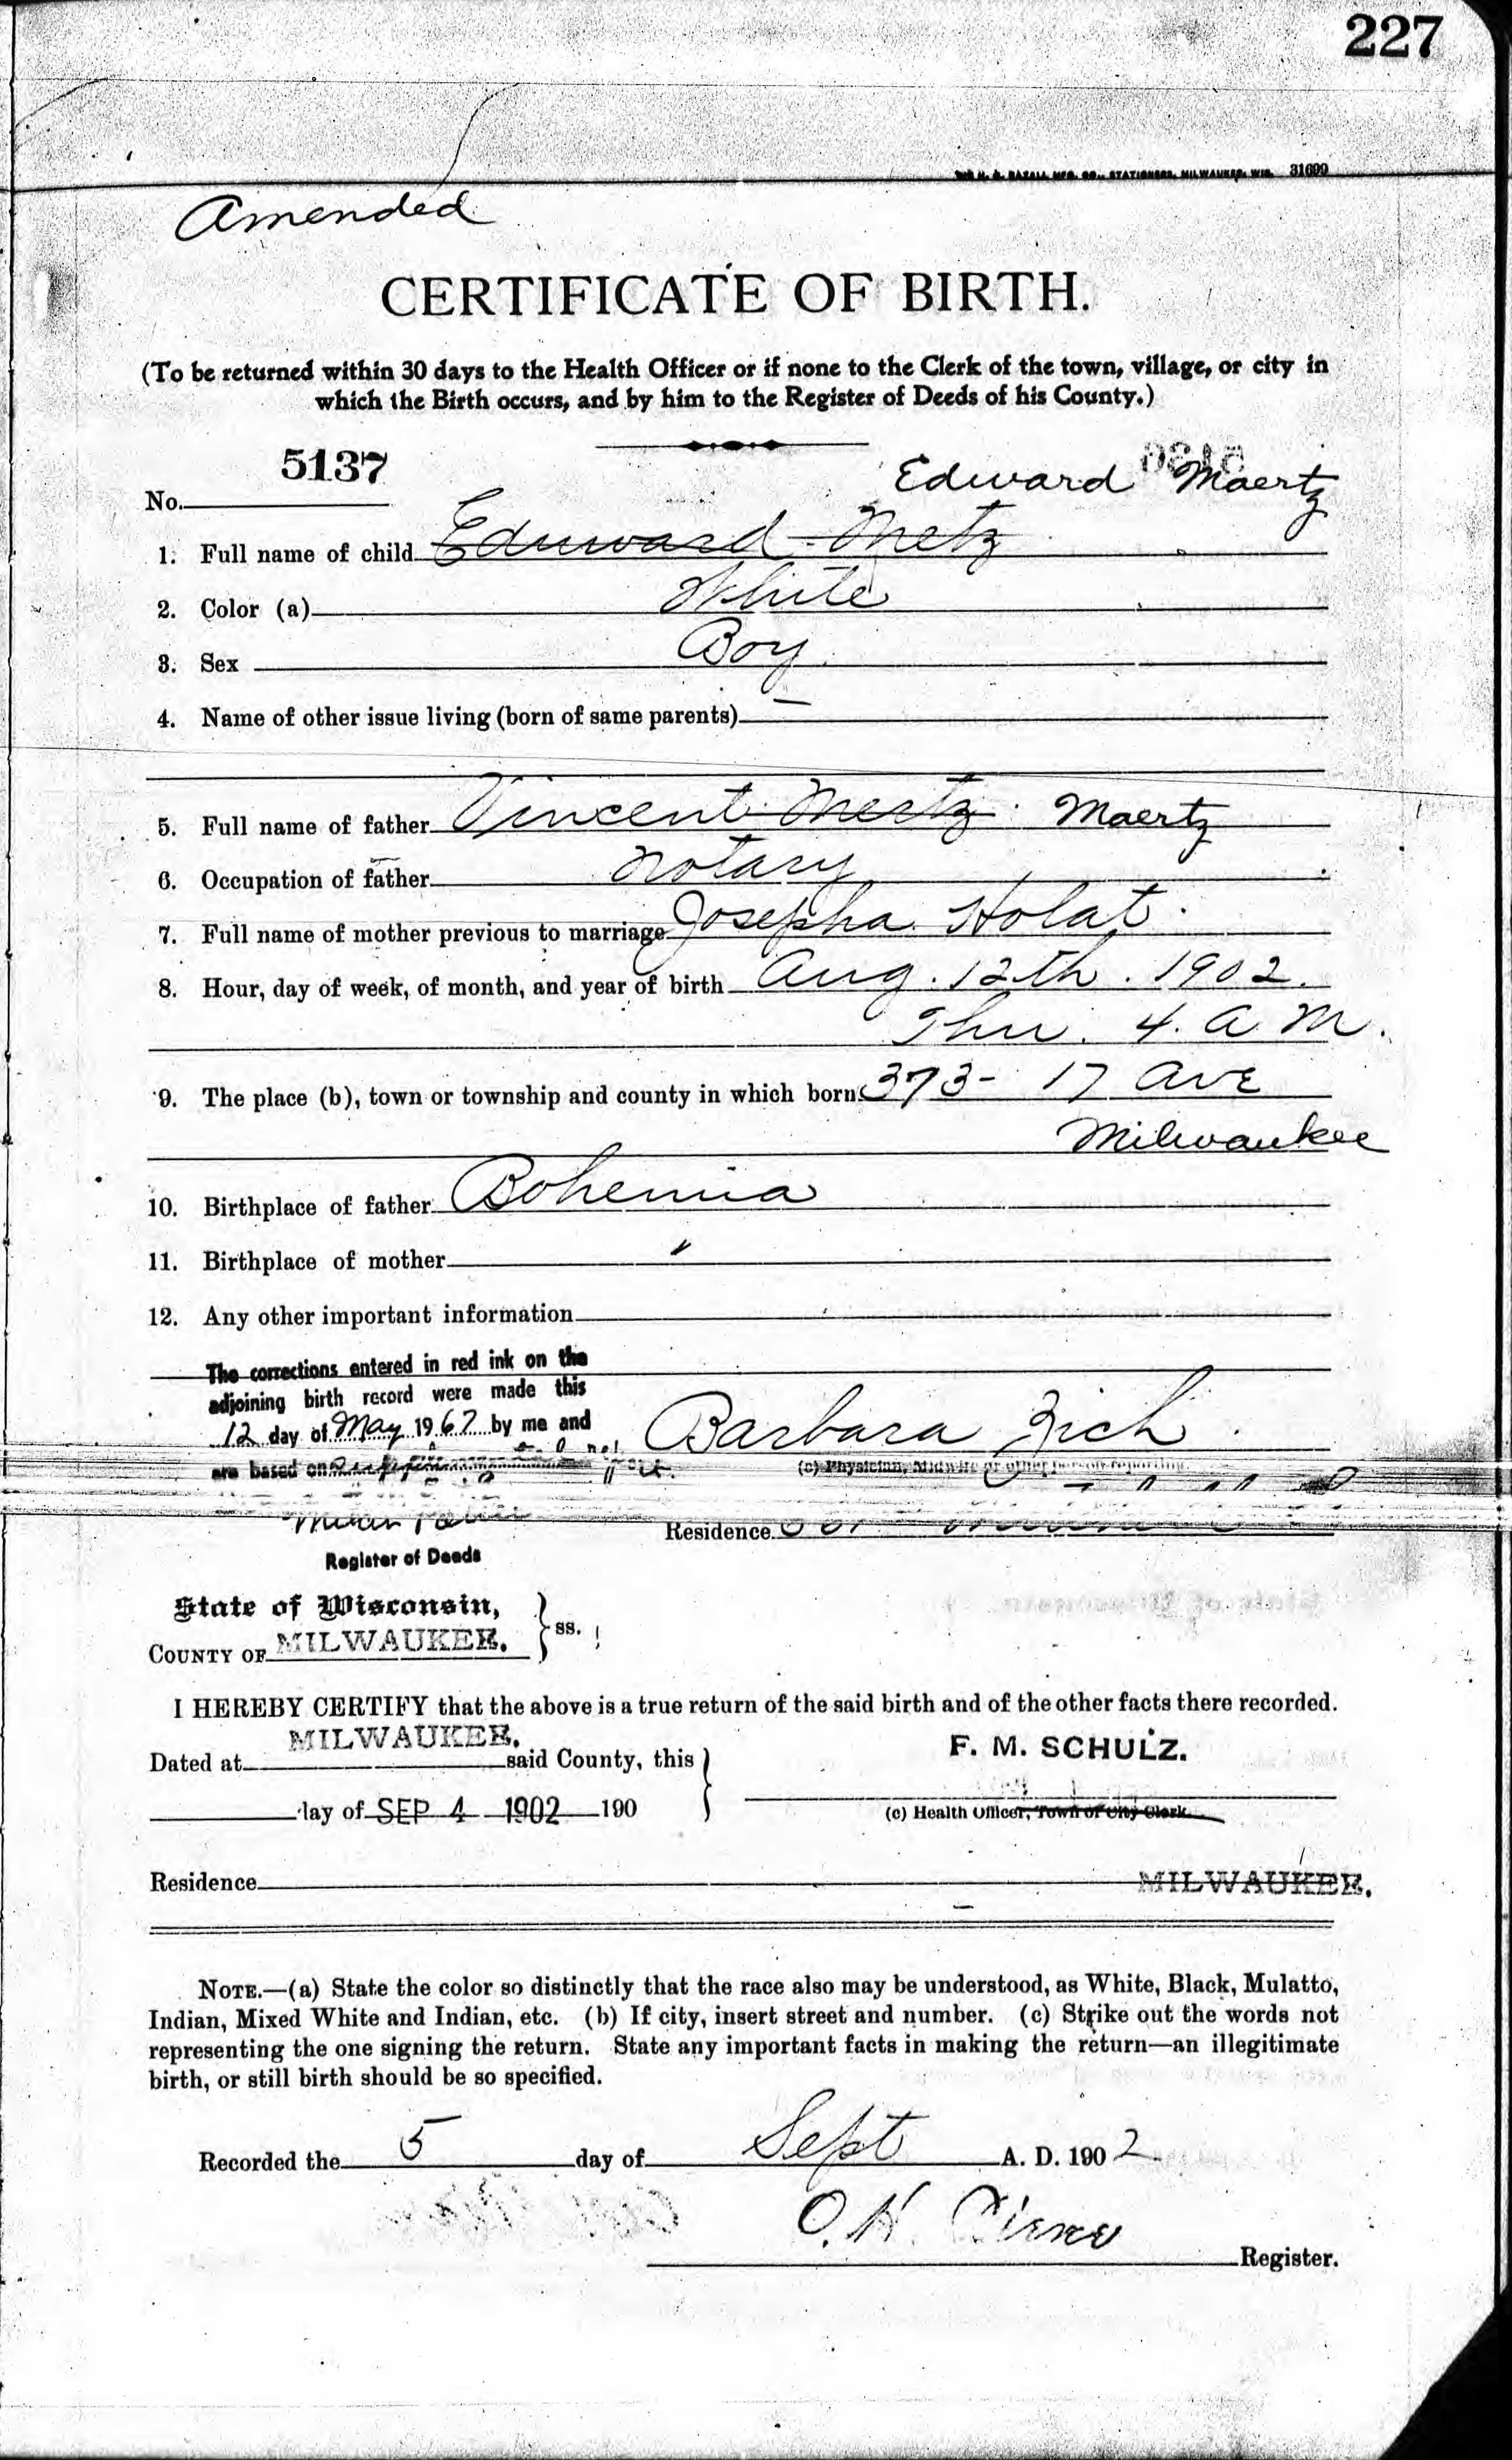 227
MFG. CO., STATIONERS, MILWAUKEE, WIS. 31699
Amended
CERTIFICATE OF BIRTH.
(To be returned within 30 days to the Health Officer or if none to the Clerk of the town, village, or city in
which the Birth occurs, and by him to the Register of Deeds of his County.)
5137
Edward Maertz
No.
1. Full name of child Eduward Metz
2. Color (a) White
3. Sex Boy
4. Name of other issue living (born of same parents) —
5. Full name of father Vincent Mertz Maertz
6. Occupation of father Notary
7. Full name of mother previous to marriage Josepha Holat
8. Hour, day of week, of month, and year of birth Aug. 12th. 1902.
Thu. 4. A M.
9. The place (b), town or township and county in which born 373 - 17 Ave
Milwaukee
10. Birthplace of father Bohemia
11. Birthplace of mother "
12. Any other important information
The corrections entered in red ink on the
adjoining birth record were made this
12 day of May 1967 by me and
Barbara Zich
are based on
(c) Physician, Midwife or other person reporting.
Residence
Register of Deeds
State of Wisconsin,
COUNTY OF MILWAUKEE. } ss.
I HEREBY CERTIFY that the above is a true return of the said birth and of the other facts there recorded.
Dated at MILWAUKEE. said County, this
F. M. SCHULZ.
day of SEP 4 1902 190
(c) Health Officer, Town or City Clerk.
Residence MILWAUKEE.
NOTE.—(a) State the color so distinctly that the race also may be understood, as White, Black, Mulatto,
Indian, Mixed White and Indian, etc. (b) If city, insert street and number. (c) Strike out the words not
representing the one signing the return. State any important facts in making the return—an illegitimate
birth, or still birth should be so specified.
Recorded the 5 day of Sept A. D. 1902
O. H.
Register.